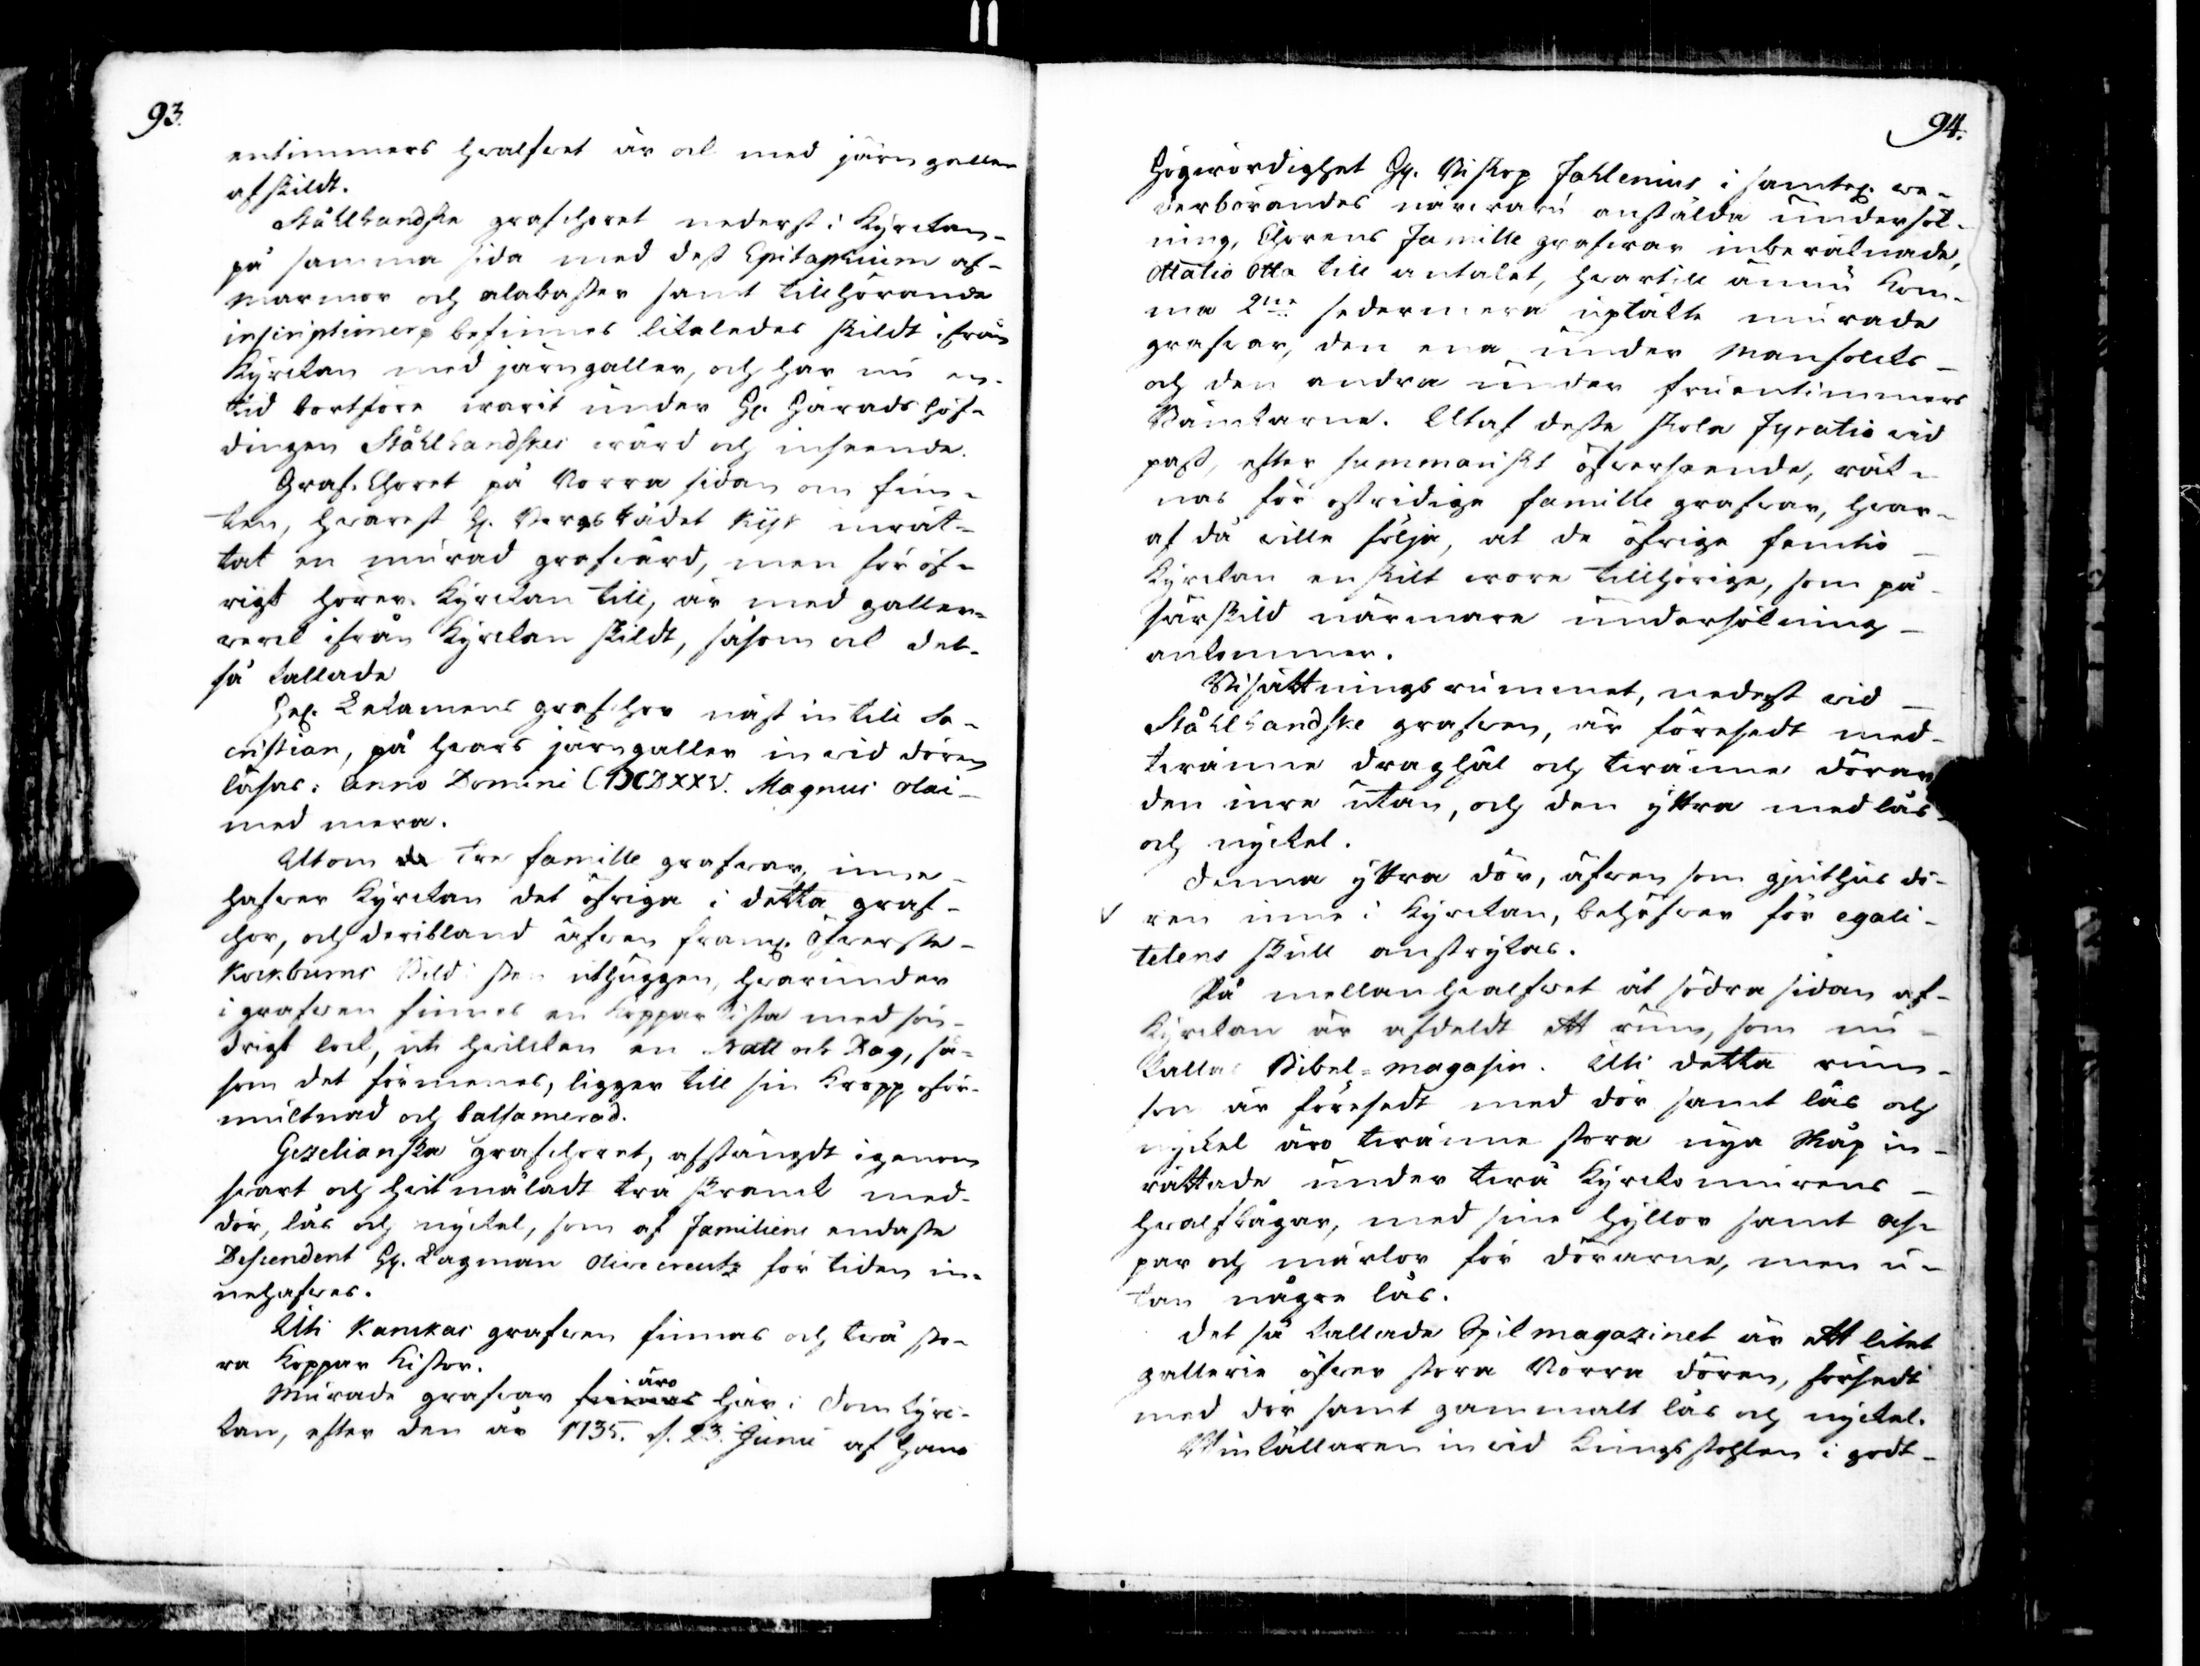 93.
entimmers hwalfwet är ock med järn galler
afskildt.
Stålhandske grafchoret nederst i Kyrckan
på samma sida med dess Epitaphium af
marmor och alabaster samt tillhörande
inscriptioner befinnes likaledes skildt ifrån
Kyrckan med järngaller, och har nu en
tid bortföre warit under H. Häradshöf-
dingen Stålhandskes wård och inseende.
Graf-Choret på Norra sidan om fun-
ten, hwarest H. Bergs Rådet Kijk inrät-
tat en murad graf wård, men för öf-
rigt hörer Kyrckan till, är med galler-
werck ifrån Kyrckan skildt, såsom ock det
så kallade
Hr. Letamens grafchor näst intill Sa-
cristian, på hwars järngaller inwid dören
läses: Anno Domini CIƆCDXXV. Magnus Olai
med mera.
Utom de tre famille grafwar, inne-
hafwer Kyrckan det öfriga i detta graf-
chor, och deribland äfwen framl. Öfwerste
Kockburns Bild i sten uthuggen, hwarunder
i grafwen finnes en Koppar Kista med sön-
drigt lock, uti hwilcken en Natt och Dag, så-
som det förmenes, ligger till sin Kropp oför-
multnad och balsamerad.
Gezelianska Grafchoret, afstängdt igenom
swart och hwit måladt trä skranck med
dör, lås och nyckel, som af Familiens endaste
Descendent H. Lagman Olivecreutz för tiden in-
nehafwes.
Uti Kanckas grafwen finnas och twå sto-
ra Koppar Kistor.
Murade grafwar finnas äro här i Domkyrc-
kan, efter den år 1735. d. 23. Junii af Hans
94.
Högwördighet H. Biskop Fahlenius i samtel. we-
derbörandes närwaru anstälda undersök-
ning, Chorens Famille grafwar inberäknade,
Ottatio Otta till antalet, hwartill ännu kom-
ma 2ne sedermera uptäkte murade
grafwar, den ena under Manfolcks
och den andra under fruentimmers
Bänckarne. Utaf desse skola Fyratio wid
pass, efter summariskt öfwerseende, räk-
nas för ostridige famille grafwar, hwar-
af då wille följa, at de öfrige femtio
Kyrckan enskilt wore tillhörige, som på
särskild närmare undersökning
ankommer.
Bisättningsrummet, nederst wid
Stålhandske grafwen, är föresedt med
twänne draghål och twänne dörar
den inre utan, och den yttra med lås
och nyckel.
Denna yttra dör, äfwen som gjuthus dö-
v ren inne i Kyrckan, behöfwer för egali-
tetens skull anstrykas.
På mellanhwalfwet åt södra sidan af
Kyrckan är afdeldt ett rum, som nu
kallas Bibel-magasin. Uti detta rum
som är föresedt med dör samt lås och
nyckel äro twänne stora nya Skåp in-
rättade under twå Kyrckomurens
hwalfbågar, med sine hyllor samt has-
par och märlor för dörarne, men u-
tan någre lås.
Det så kallade Spilmagazinet är ett litet
gallerie öfwer stora Norra dören, försedt
med dör samt gammalt lås och nyckel.
Winkällaren inwid Kungsstohlen i godt